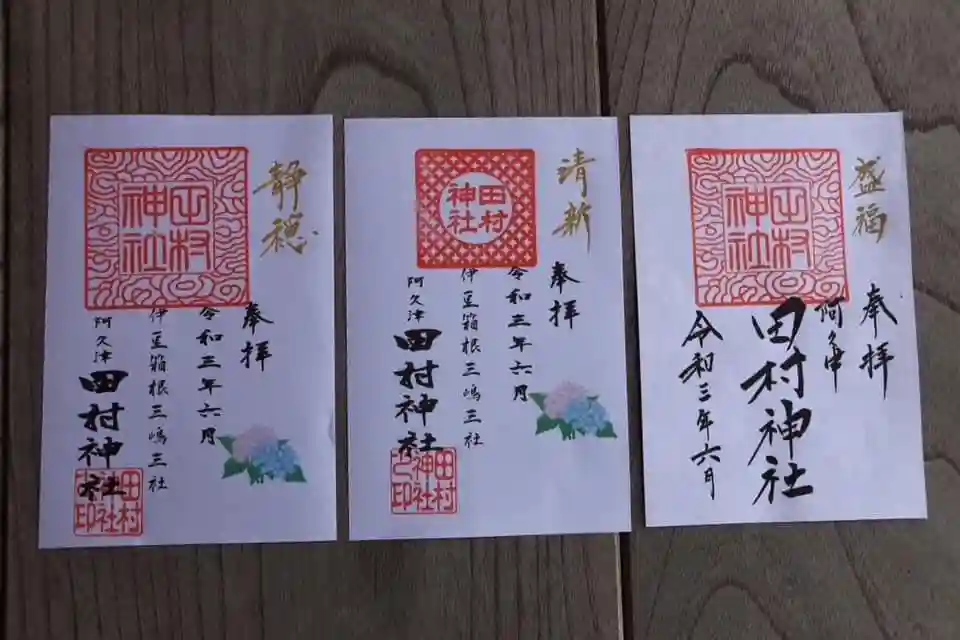 静穏
奉拝
令和三年六月
伊豆箱根三嶋三社
阿久津
田村神社
田村
神社
田村
神社
之印
清新
奉拝
令和三年六月
伊豆箱根三嶋三社
阿久津
田村神社
田村
神社
田村
神社
之印
盛福
奉拝
阿久津
田村神社
令和三年六月
田村
神社